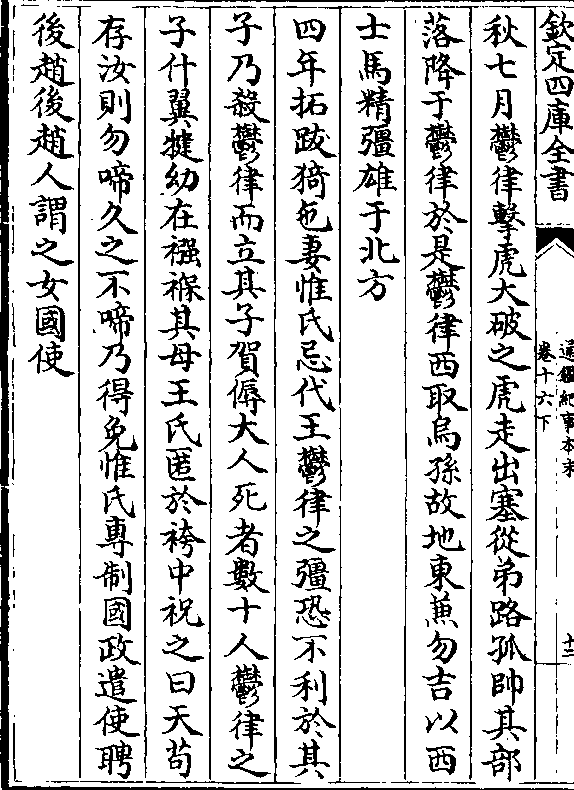 欽定四庫全書
通鑑紀事本末
卷十六下
十二
秋七月鬱律擊虎大破之虎走出塞從弟路孤帥其部
落降于鬱律於是鬱律西取烏孫故地東蕉勿吉以西
士馬精彊雄于北方
四年拓跋猗㐌妻惟氏忌代王鬱律之彊恐不利於其
子乃殺鬱律而立其子賀傉大人死者數十人鬱律之
子什翼犍幼在襁褓其母王氏匿於袴中祝之曰天苟
存汝則勿啼久之不啼乃得免惟氏專制國政遣使聘
後趙後趙人謂之女國使